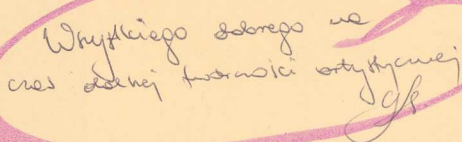 Wszystkiego dobrego na
czas dalszej twórczości artystycznej